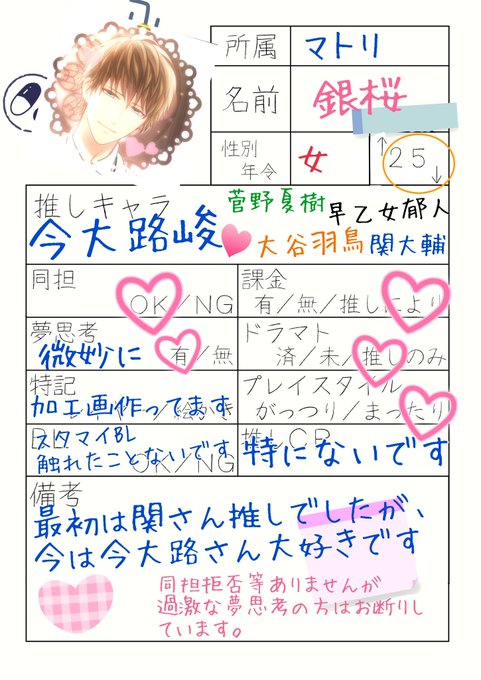 所属 マトリ
名前 銀桜
性別 女
年令 ↑25↓
推しキャラ
今大路峻
菅野夏樹 早乙女郁人
大谷羽鳥 関大輔
同担
OK/NG
課金
有/無/推しにより
夢思考
微妙に 有/無
ドラマト
済/未/推しのみ
特記
加工画作ってます
絵かき
プレイスタイル
がっつり/まったり
スタマイBL
触れたことないです
OK/NG
推しCP
特にないです
備考
最初は関さん推しでしたが、
今は今大路さん大好きです
同担拒否等ありませんが
過激な夢思考の方はお断りし
ています。